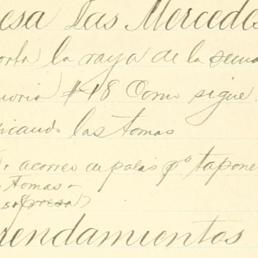 esa Las Mercedes
orta la raya de la sema
moria #18 Como sigue
icando las tomas
acarreo de palos pa tapone
tomas
rendamientos